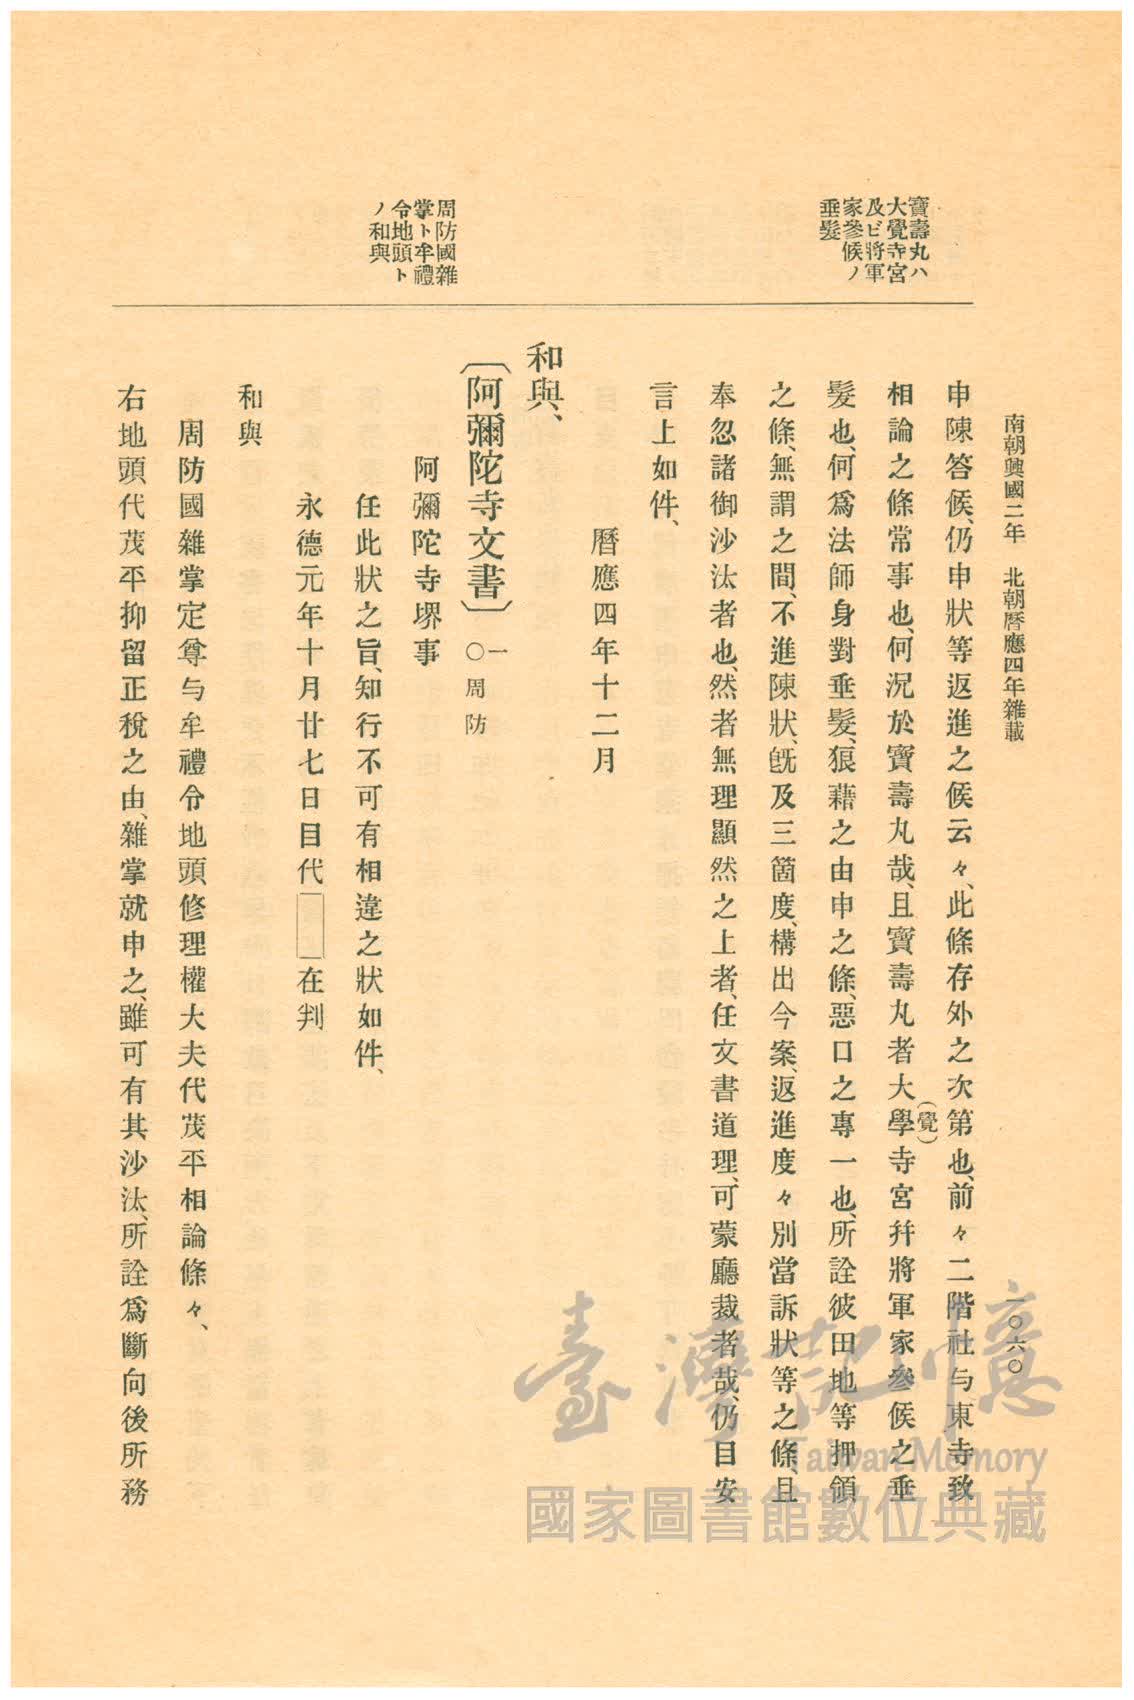 南朝興國二年　北朝曆應四年雜載
一〇六〇
寶壽丸ハ
大覺寺宮
及ビ將軍
家參候ノ
垂髮
申陳答候、仍申狀等返進之候云々、此條存外之次第也、前々二階社与東寺致
相論之條常事也、何況於寶壽丸哉、且寶壽丸者大學(覺)寺宮幷將軍家參候之垂
髮也、何爲法師身對垂髮、狼藉之由申之條、惡口之專一也、所詮彼田地等押領
之條、無謂之間、不進陳狀、旣及三箇度、構出今案、返進度々別當訴狀等之條、且
奉忽諸御沙汰者也、然者無理顯然之上者、任文書道理、可蒙廳裁者哉、仍目安
言上如件、
曆應四年十二月
和與、
〔阿彌陀寺文書〕一〇周防
周防國雜
掌ト牟禮
令地頭ト
ノ和與
阿彌陀寺堺事
任此狀之旨、知行不可有相違之狀如件、
永德元年十月廿七日目代在判
和與
周防國雜掌定尊与牟禮令地頭修理權大夫代茂平相論條々、
右地頭代茂平抑留正稅之由、雜掌就申之、雖可有其沙汰、所詮爲斷向後所務
臺灣記憶
Taiwan Memory
國家圖書館數位典藏